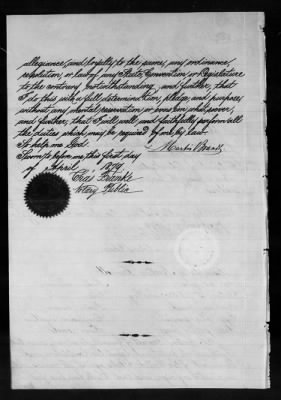 allegiance, and loyalty to the same, any ordinance,
resolution, or law of any State, Convention or Legislature
to the contrary notwithstanding, and further, that
I do this with a full determination, pledge, and purpose,
without any mental reservation or evasion whatsoever,
and further, that I will well and faithfully perform all
the duties which may be required of me by law
So help me God.
Sworn to before me this first day
of April, 1879
Chas Franke
Notary Public